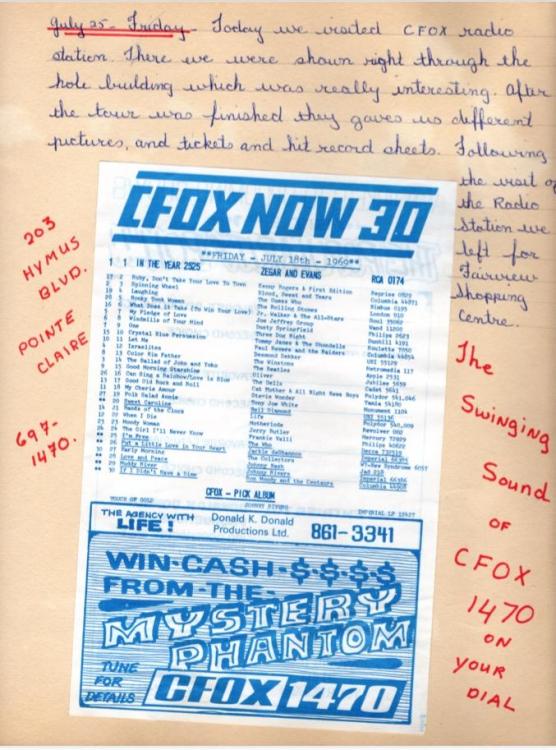 July 25- Friday- Today we visited CFOX radio
station. There we were shown right through the
hole building which was really interesting. After
the tour was finished they gaves us different
pictures, and tickets and hit record sheets. Following
the visit of
the Radio
Station we
left for
Fairview
Shopping
Centre.
203
HYMUS
BLVD.
POINTE
CLAIRE
697-
1470.
CFOX NOW 30
**FRIDAY - JULY 18th - 1969**
1 1 IN THE YEAR 2525 ZEGAR AND EVANS RCA 0174
2 Ruby, Don't Take Your Love To Town Kenny Rogers & First Edition Reprise 0829
3 Spinning Wheel Blood, Sweat and Tears Columbia
4 Laughing The Guess Who Nimbus
5 Honky Tonk Women The Rolling Stones London 910
6 What Does It Take (To Win Your Love) Jr. Walker & The All-Stars Soul
My Pledge of Love Joe Jeffrey Group Wand 11200
Windmills of Your Mind Dusty Springfield Philips
One Three Dog Night Dunhill 4191
10 Crystal Blue Persuasion Tommy James & The Shondells Roulette
11 Let Me Paul Revere and the Raiders Columbia
12 Israelites Desmond Dekker UNI
13 Color Him Father The Winstons Metromedia 117
14 The Ballad of John and Yoko The Beatles Apple 2531
15 Good Morning Starshine Oliver Jubilee 5659
16 Can Sing a Rainbow/Love is Blue The Dells Cadet 5641
17 Good Old Rock and Roll Cat Mother & All Night News Boys Polydor
18 My Cherie Amour Stevie Wonder Tamla
19 Polk Salad Annie Tony Joe White Monument 1104
20 Sweet Caroline Neil Diamond UNI 55136
21 Hands of the Clock Life Polydor
22 When I Die Motherlode Revolver 002
23 Moody Woman Jerry Butler Mercury 72929
24 The Girl I'll Never Know Frankie Valli Philips 40622
25 I'm Free
Put a Little Love in Your Heart Jackie DeShannon Imperial
27 Early Morning The Collectors
Love and Peace
Muddy River Johnny Rivers Imperial
30 If I Didn't Have a Dime
CFOX - PICK ALBUM
TOUCH OF GOLD JOHNNY RIVERS IMPERIAL LP
THE AGENCY WITH
LIFE!
Donald K. Donald
Productions Ltd.
861-3341
WIN-CASH-$-$-$-$
FROM-THE-
MYSTERY
PHANTOM
TUNE
FOR
DETAILS
CFOX 1470
The
Swinging
Sound
OF
CFOX
1470
ON
YOUR
DIAL